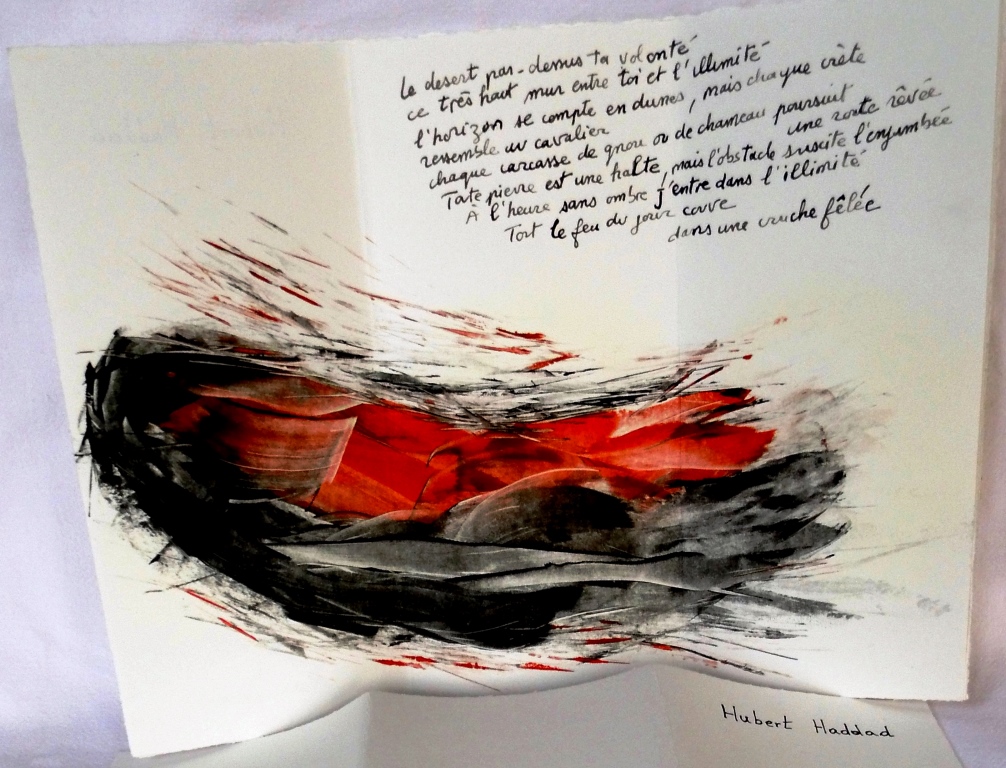 Le desert par-dessus ta volonté
ce très haut mur entre toi et l'illimité
l'horizon se compte en dunes, mais chaque crète
ressemble un cavalier
chaque carcasse de gnou ou de chameau poursuit
une route rêvée
Toute pierre est une halte, mais l'obstacle suscite l'enjambée
À l'heure sans ombre j'entre dans l'illimité
Tout le feu du jour couve
dans une cruche fêlée
Hubert Haddad